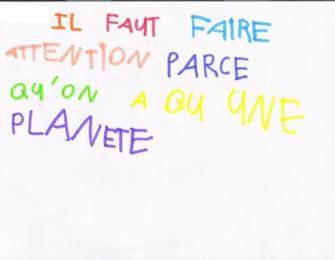 IL FAUT FAIRE
ATTENTION PARCE
QU'ON A QU UNE
PLANETE